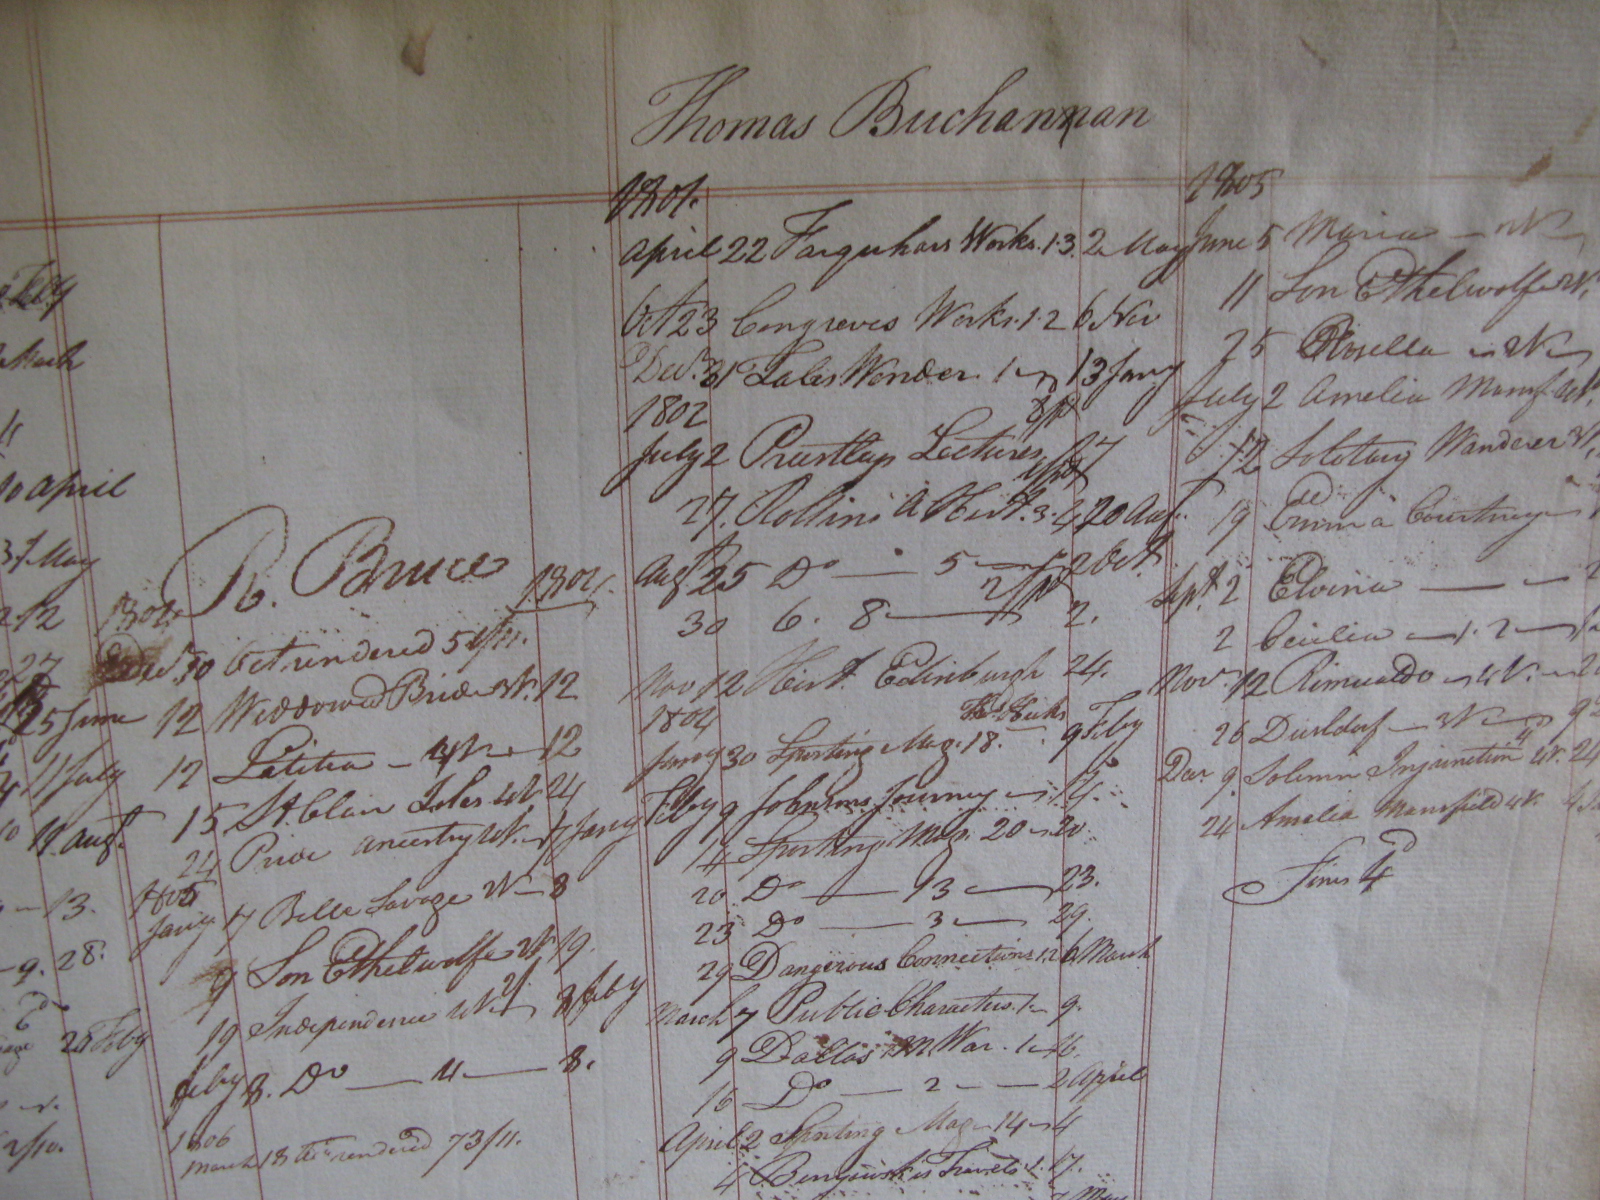 Feby
March
10 april
31 May
212
27
25 June
11 July
19 augt.
13.
9. 28.
28 Feby
R. Bruce
1804. 1804
Decr. 10 Act rendered 51/11.
12 Widdowed Bride 3V. 12
12 Letitia 12
15 St Clair Isles 4V. 24
24 Price ancestry 4V. 17 Jany
1805
Jany 17 Belle Savage 2V 8
9 Son Ethelwolfe 2V 19.
19 Independence 8 feby
feby 8. Do — 4 — 8.
1806
March 18 acct rendered 73/11.
Thomas Buchannan
1801.
april 22 Farquhars Works. 1.3. 2 May
Oct 23 Congreves Works. 1.2 6 Nov
Decr. 31 Tales Wonder. 1 13 Jany
1802
July 2 Priestleys Lectures 27
27. Rollins A Hist. 3. 4 20 Augt.
Augt 25 Do — 5 — 2 Oct.
30 6. 8 — 2.
Nov 12 Hist. Edinburgh 24.
1804
Jany 30 Sporting Mag. 18. 9 Feby
Feby 9 Johnsons Journey 14.
14 Sporting Mag. 20 20.
20 Do — 13 — 23.
23 Do — 3 — 29.
29 Dangerous Connections 1.2 6 March
March 7 Public Characters. 1 9.
9 Dallas M. War. 1 16.
16 Do — 2 — 2 April
April 2 Sporting Mag 14 4
4 Benyowskis Travels. 1. 17.
1805
June 5 Maria
11 Son Ethelwolfe 2V.
25 Rosella 2V
July 2 Amelia Mansf
12 Solitary Wanderer 3V.
19 Emma Courtney
Sept. 2 Elvira —
2 Cecilia 1.2
Nov. 12 Rimualdo 4V.
26 Dusldorf 3V
Dec 9. Solemn Injunction 4V. 24
24 Amelia Mansfield 4V.
Fines 4d